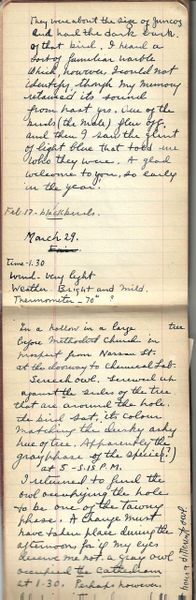 They were about the size of Juncos
and had the dark back
of that bird. I heard a
sort of familiar warble
which, however, I could not
identify, though my memory
retained its sound
from past yrs. One of the
birds (the male) flew off,
and then I saw the glint
of light blue that told me
who they were. A glad
welcome to you, so early
in the year.
Feb 17 - blackbirds.
March 29.
Time - 1.30
Wind - Very light
Weather - Bright and mild.
Thermometer - 70° ?
In a hollow in a large tree
before Methodist Church in
front from Nassau St.
at the doorway to Chemical Lab.
Screech owl. Screwed up
against the sides of the tree
that are around the hole
the bird sat, its colour
matching the dusky ashy
hue of tree. Apparently the
gray phase of the species (?)
at 5 - 5.15 P.M.
I returned to find the
owl occupying the hole
to be one of the tawny
phase. A change must
have taken place during the
afternoon, for if my eyes
deceive me not a gray owl
occupied the
at 1.30. Perhaps however
different owl.